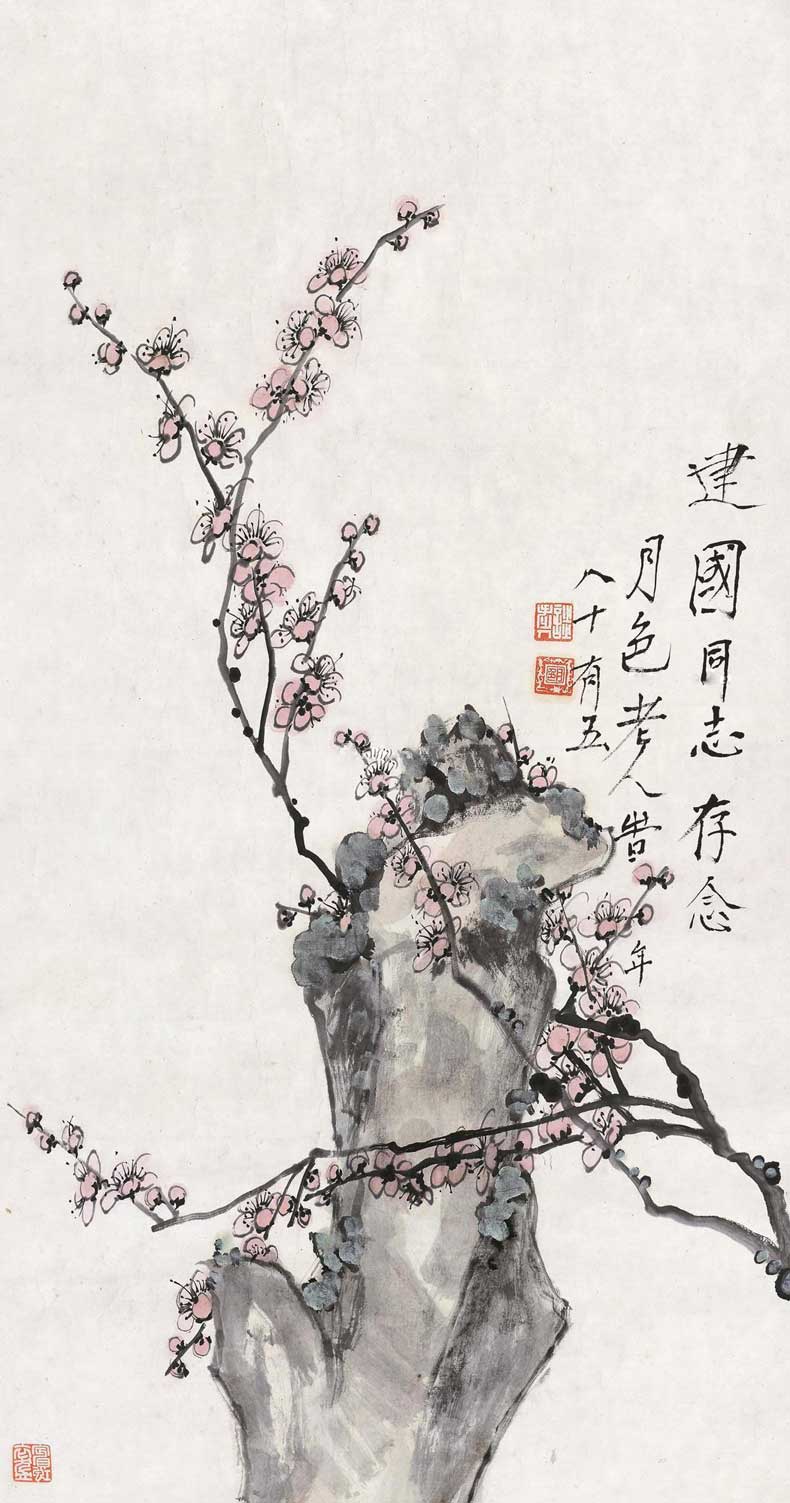 建國同志存念
月色老人旹年
八十有五